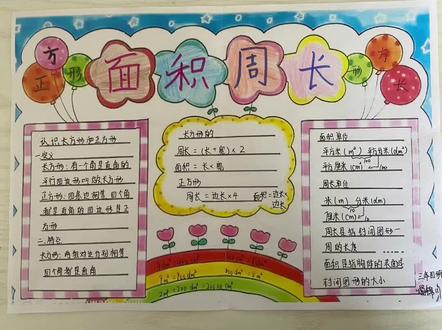 正
方
形
面积周长
长
方
形
认识长方形和正方形
一.定义
长方形:有一个角是直角的
平行四边形叫做长方形
正方形:四条边相等,四个角
都是直角的四边形是正
方形
长方形:两组对边分别相等
四个都是直角
长方形的
周长=(长+宽)×2
面积=长×宽
正方形
周长=边长×4
面积=边长×
边长
面积单位
平方米(m²)平方分米(dm²)
平方厘米(cm²)
周长单位
米(m)分米(dm)
厘米(cm)
周长是指封闭图形一
周的长度
面积是指物体的表面或
封闭图形的大小